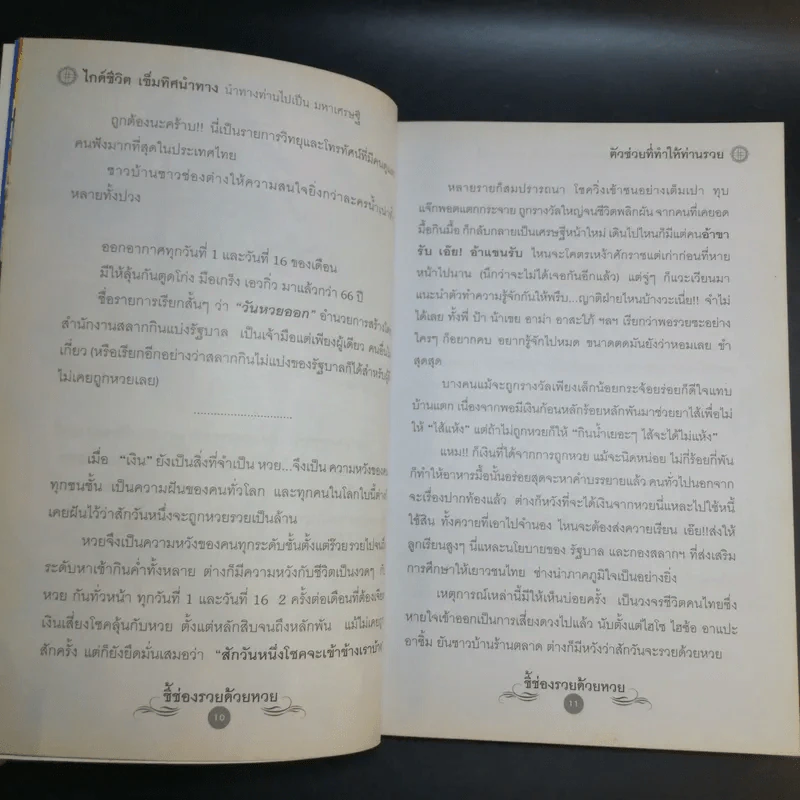 ไกด์ชีวิต เข็มทิศนำทาง นำทางท่านไปเป็น มหาเศรษฐี
ถูกต้องนะคร้าบ!! นี่เป็นรายการวิทยุและโทรทัศน์ที่มีคน
คนฟังมากที่สุดในประเทศไทย
ชาวบ้านชาวช่องต่างให้ความสนใจยิ่งกว่าละครน้ำเน่า
หลายทั้งปวง
ออกอากาศทุกวันที่ 1 และวันที่ 16 ของเดือน
มีให้ลุ้นกันตูดโก่ง มือเกร็ง เอวกิ่ว มาแล้วกว่า 66 ปี
ชื่อรายการเรียกสั้นๆ ว่า “วันหวยออก” อำนวยการสร้างโดย
สำนักงานสลากกินแบ่งรัฐบาล เป็นเจ้ามือแต่เพียงผู้เดียว คนอื่น
เกี่ยว (หรือเรียกอีกอย่างว่าสลากกินไม่แบ่งของรัฐบาลก็ได้สำหรับ
ไม่เคยถูกหวยเลย)
............................
เมื่อ “เงิน” ยังเป็นสิ่งที่จำเป็น หวย...จึงเป็น ความหวังของ
ทุกชนชั้น เป็นความฝันของคนทั่วโลก และทุกคนในโลกใบนี้ต่าง
เคยฝันไว้ว่าสักวันหนึ่งจะถูกหวยรวยเป็นล้าน
หวยจึงเป็นความหวังของคนทุกระดับชั้นตั้งแต่ร๊วยรวยไปจน
ระดับหาเช้ากินค่ำทั้งหลาย ต่างก็มีความหวังกับชีวิตเป็นงวดๆ
หวย กันทั่วหน้า ทุกวันที่ 1 และวันที่ 16 2 ครั้งต่อเดือนที่ต้องเจียด
เงินเสี่ยงโชคลุ้นกับหวย ตั้งแต่หลักสิบจนถึงหลักพัน แม้ไม่เคย
สักครั้ง แต่ก็ยังยึดมั่นเสมอว่า “สักวันหนึ่งโชคจะเข้าข้างเราบ้าง
ชี้ช่องรวยด้วยหวย
10
ตัวช่วยที่ทำให้ท่านรวย
หลายรายก็สมปรารถนา โชควิ่งเข้าชนอย่างเต็มเปา ทุบ
แจ๊กพอตแตกกระจาย ถูกรางวัลใหญ่จนชีวิตพลิกผัน จากคนที่เคยอด
มื้อกินมื้อ ก็กลับกลายเป็นเศรษฐีหน้าใหม่ เดินไปไหนก็มีแต่คนอ้าขา
รับ เอ๊ย! อ้าแขนรับ ไหนจะโคตรเหง้าศักราชแต่เก่าก่อนที่หาย
หน้าไปนาน (นึกว่าจะไม่ได้เจอกันอีกแล้ว) แต่จู่ๆ ก็แวะเวียนมา
แนะนำตัวทำความรู้จักกันให้พรึบ...ญาติฝ่ายไหนบ้างวะเนี่ย!! จำไม่
ได้เลย ทั้งพี่ ป้า น้าเขย อาม่า อาสะใภ้ ฯลฯ เรียกว่าพอรวยซะอย่าง
ใครๆ ก็อยากคบ อยากรู้จักไปหมด ขนาดตดมันยังว่าหอมเลย ขำ
สุดสุด
บางคนแม้จะถูกรางวัลเพียงเล็กน้อยกระจ้อยร่อยก็ดีใจแทบ
บ้านแตก เนื่องจากพอมีเงินก้อนหลักร้อยหลักพันมาช่วยยาไส้เพื่อไม่
ให้ “ไส้แห้ง” แต่ถ้าไม่ถูกหวยก็ให้ “กินน้ำเยอะๆ ไส้จะได้ไม่แห้ง”
แหม!! ก็เงินที่ได้จากการถูกหวย แม้จะนิดหน่อย ไม่กี่ร้อยกี่พัน
ก็ทำให้อาหารมื้อนั้นอร่อยสุดจะหาคำบรรยายแล้ว คนทั่วไปนอกจาก
จะเรื่องปากท้องแล้ว ต่างก็หวังที่จะได้เงินจากหวยนี่แหละไปใช้หนี้
ใช้สิน ทั้งควายที่เอาไปจำนอง ไหนจะต้องส่งควายเรียน เอ๊ย!!ส่งให้
ลูกเรียนสูงๆ นี่แหละนโยบายของ รัฐบาล และกองสลากฯ ที่ส่งเสริม
การศึกษาให้เยาวชนไทย ช่างน่าภาคภูมิใจเป็นอย่างยิ่ง
เหตุการณ์เหล่านี้มีให้เห็นบ่อยครั้ง เป็นวงจรชีวิตคนไทยซึ่ง
หายใจเข้าออกเป็นการเสี่ยงดวงไปแล้ว นับตั้งแต่ไฮโซ ไฮซ้อ อาแปะ
อาซิ้ม ยันชาวบ้านร้านตลาด ต่างก็มีหวังว่าสักวันจะรวยด้วยหวย
ชี้ช่องรวยด้วยหวย
11